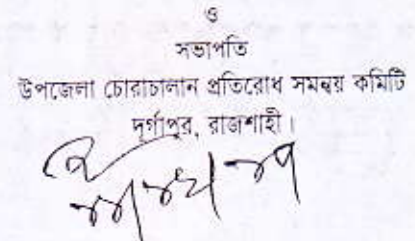 ও
সভাপতি
উপজেলা চোরাচালান প্রতিরোধ সমন্বয় কমিটি
দূর্গাপুর, রাজশাহী।